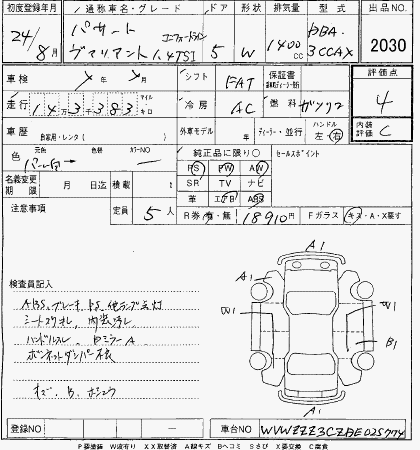 初度登録年月 通称車名・グレード ドア 形状 排気量 型式 出品NO.
24/8月 パサート ヴァリアント 1.4TSI 5 W 1400cc DBA-3CCAX 2030
車検 年 月 シフト FAT 保証書 評価点
走行 143383 マイル キロ 冷房 AC 燃料 ガソリン 4
車歴 自家用・レンタ( ) 外車モデル 年 ディーラー・並行 ハンドル 左・右 内装評価 C
色 元色 パール白 → 色替 カラーNO 純正品に限り○ セールスポイント
名義変更期限 月 日迄 積載 t PS PW AW
SR TV ナビ
革 エアB ABS
注意事項 定員 5人 R券 有・無 18910円 Fガラス キズ・A・X要す
検査員記入
A1
ABS、ブレーキ
A1
シートスリキレ、内装汚レ
W1 W1
ハンドルスレ
B1
ボンネットダンパー不良
キズ、B、ホシュウ
A1
登録NO 車台NO WVWZZZ3CZDE025774
P要塗装 W波有り XX取替済 A線キズ Bヘコミ Sさび X要交換 C腐食